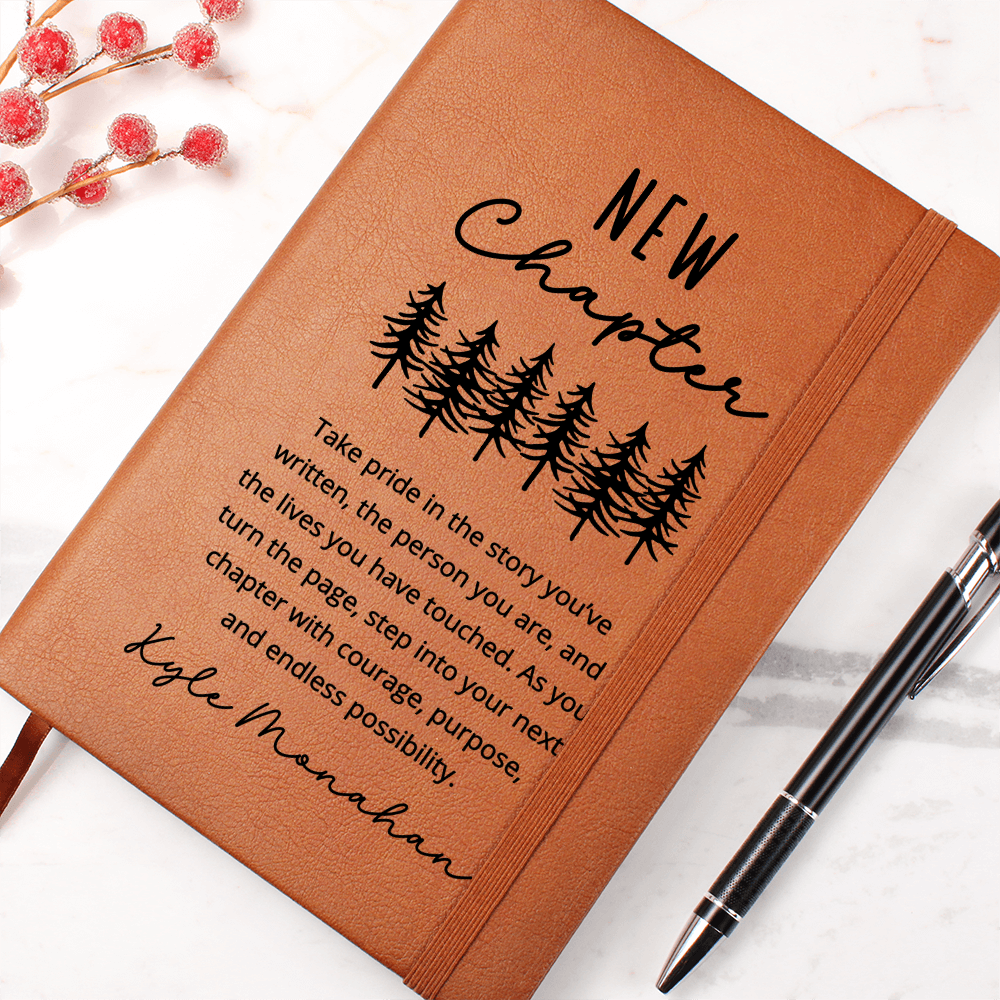 NEW
Chapter
Take pride in the story you've
written, the person you are, and
the lives you have touched. As you
turn the page, step into your next
chapter with courage, purpose,
and endless possibility.
Kyle Monahan